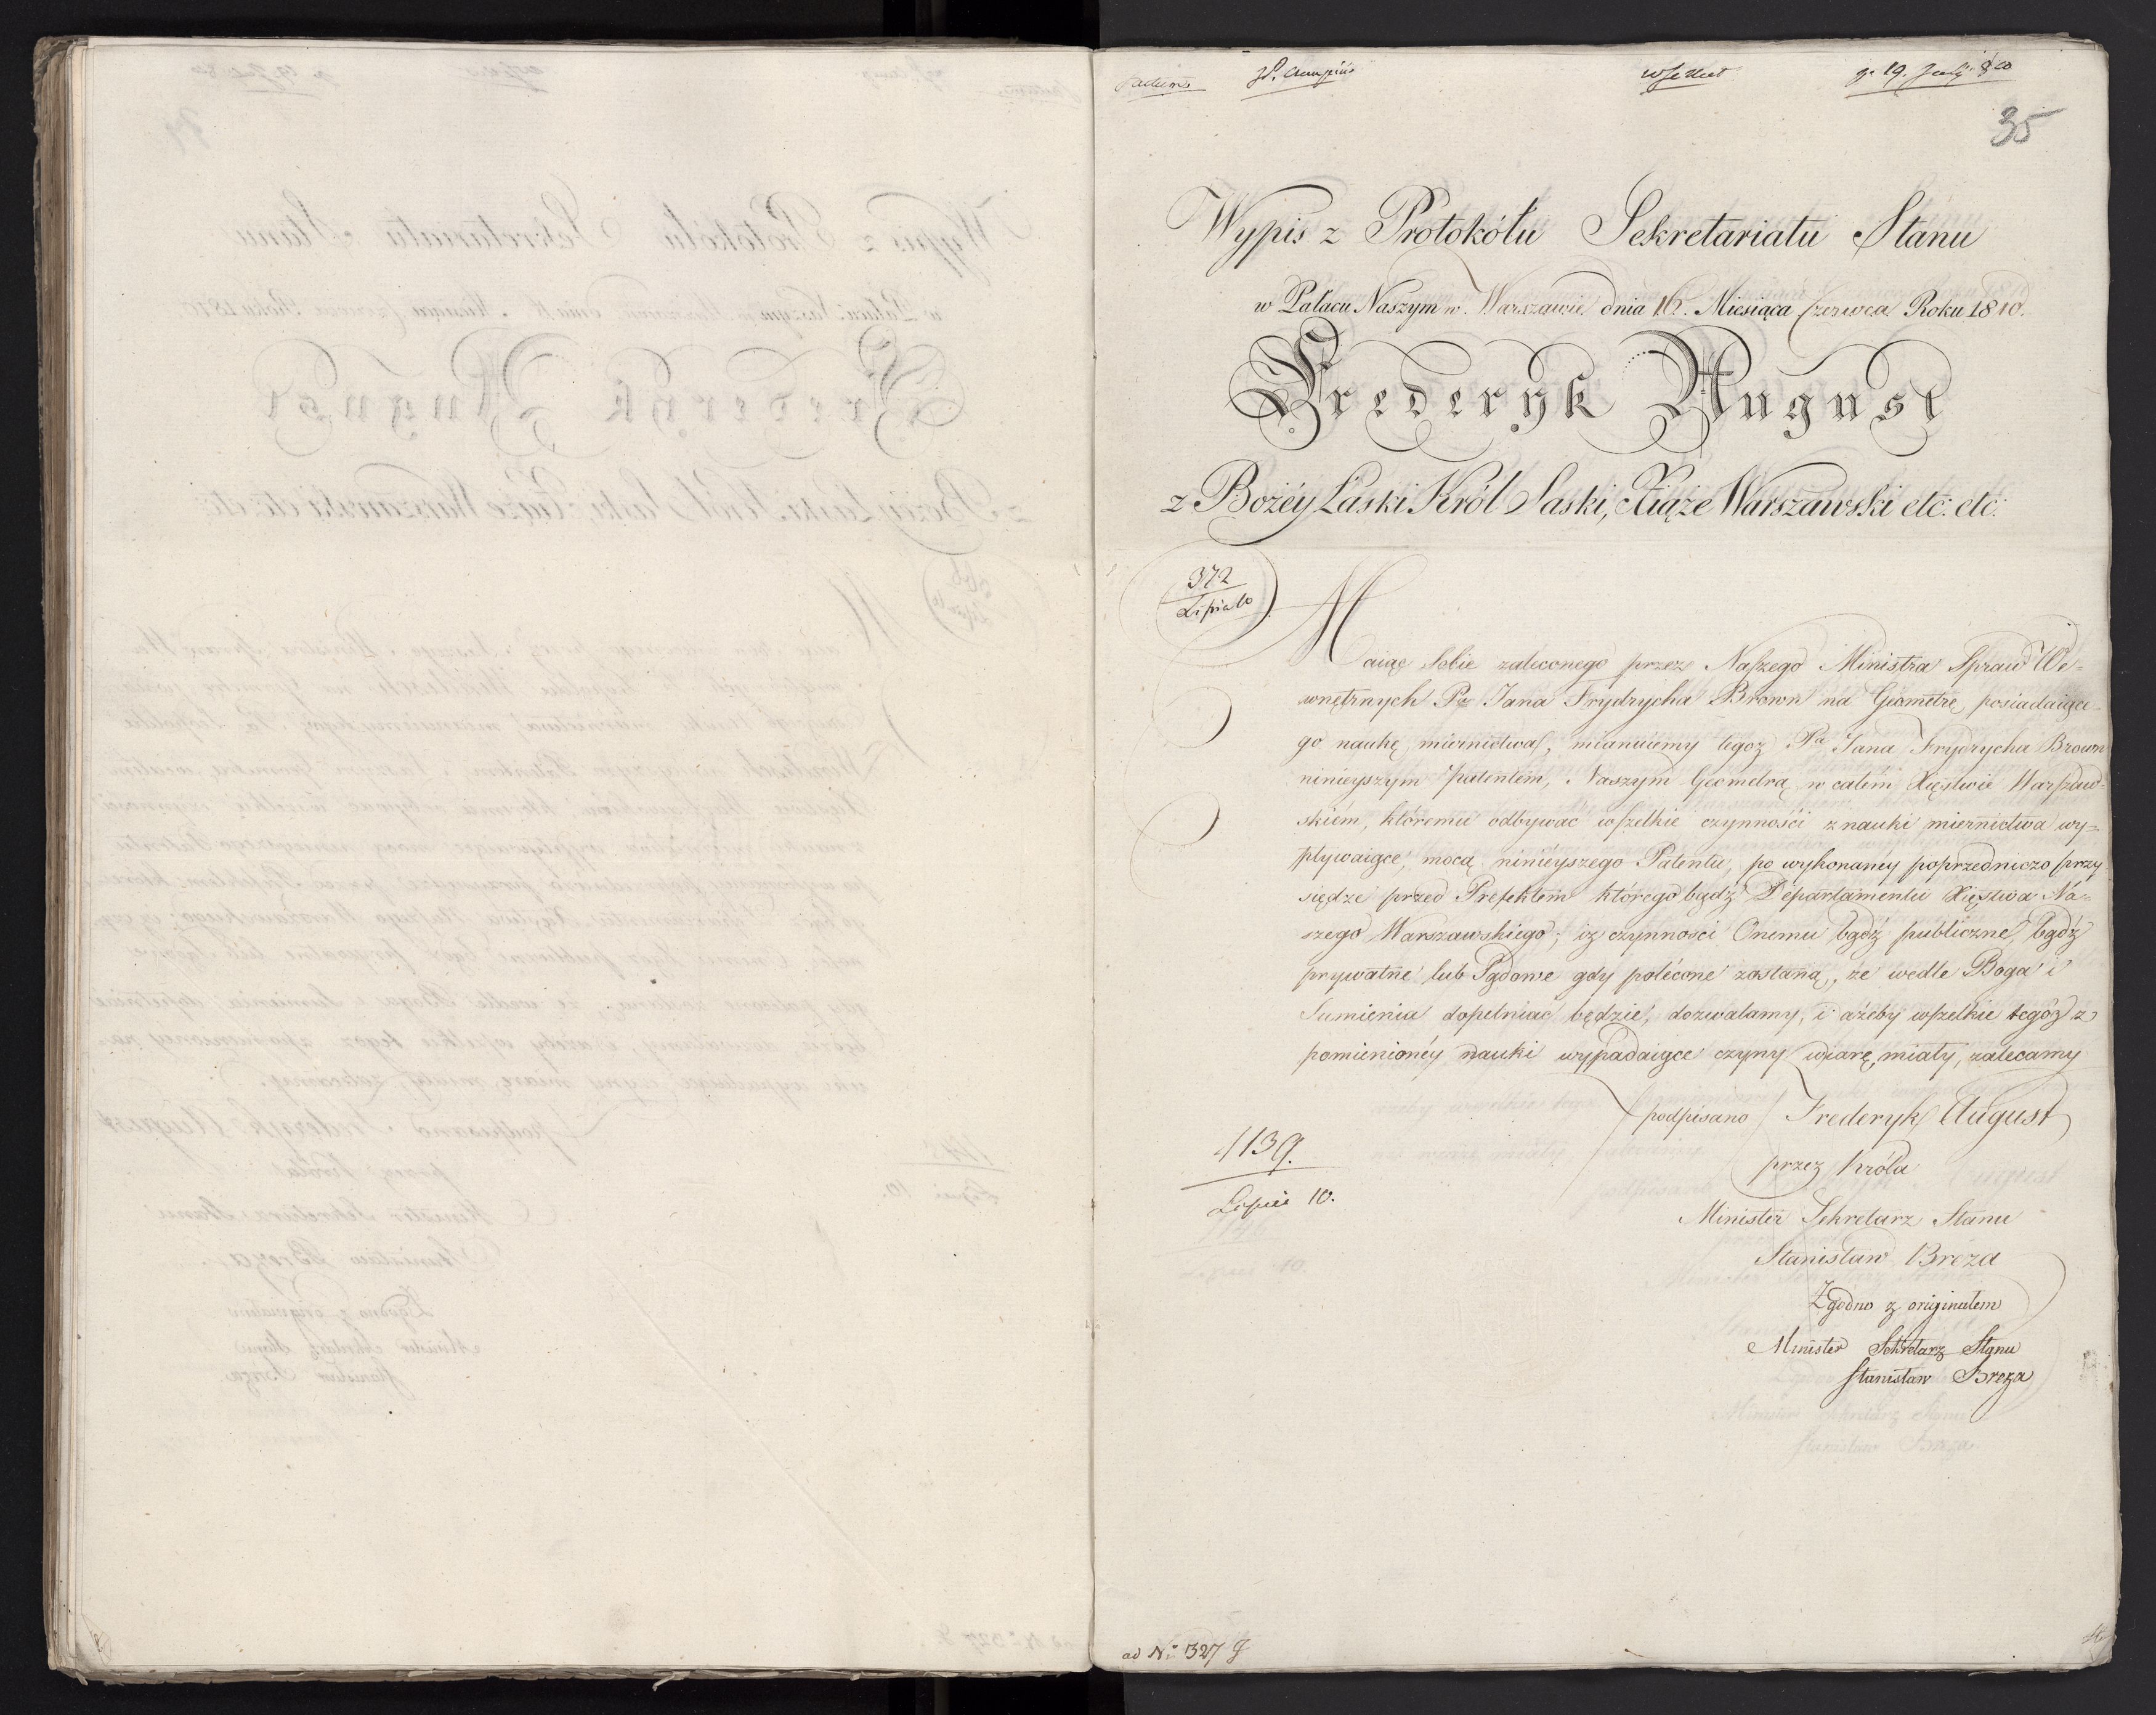 35
Wypis z Protokółu Sekretariatu Stanu
w Pałacu Naszym w Warszawie dnia 16. Miesiąca Czerwca Roku 1810.
Frederyk August
z Bożéy Łaski Król Saski, Xiąże Warszawski etc: etc:
372
Lipia 10
Maiąc Sobie zaleconego przez Naszego Ministra Spraw We=
wnętrznych Pa Jana Frydrycha Brown na Geometrę, posiadaiące-
go naukę miernictwa, mianuiemy tegoż Pa Jana Frydrycha Brown
ninieyszym patentem, Naszym Geometrą w całém Xięstwie Warszaw=
skiém, któremu odbywać wszelkie czynności z nauki miernictwa wy=
pływaiące, mocą ninieyszego Patentu, po wykonanéy poprzedniczo przy
siędze przed Prefektem którego bądź Departamentu Xięstwa Na=
szego Warszawskiego; iż czynności Onemu bądź publiczne, bądź
prywatne lub Sądowe gdy polécone zostaną, że wedle Boga i
Sumienia dopełniać będzie, dozwalamy, i ażeby wszelkie tegoż z
pomienionéy nauki wypadaiące czyny wiarę miały, zalecamy
podpisano / Frederyk August
przez Króla
1139.
Lipca 10.
Minister Sekretarz Stanu
Stanisław Breza
Zgodno z originałem
Minister Sekretarz Stanu
Stanisław Breza
ad No 327